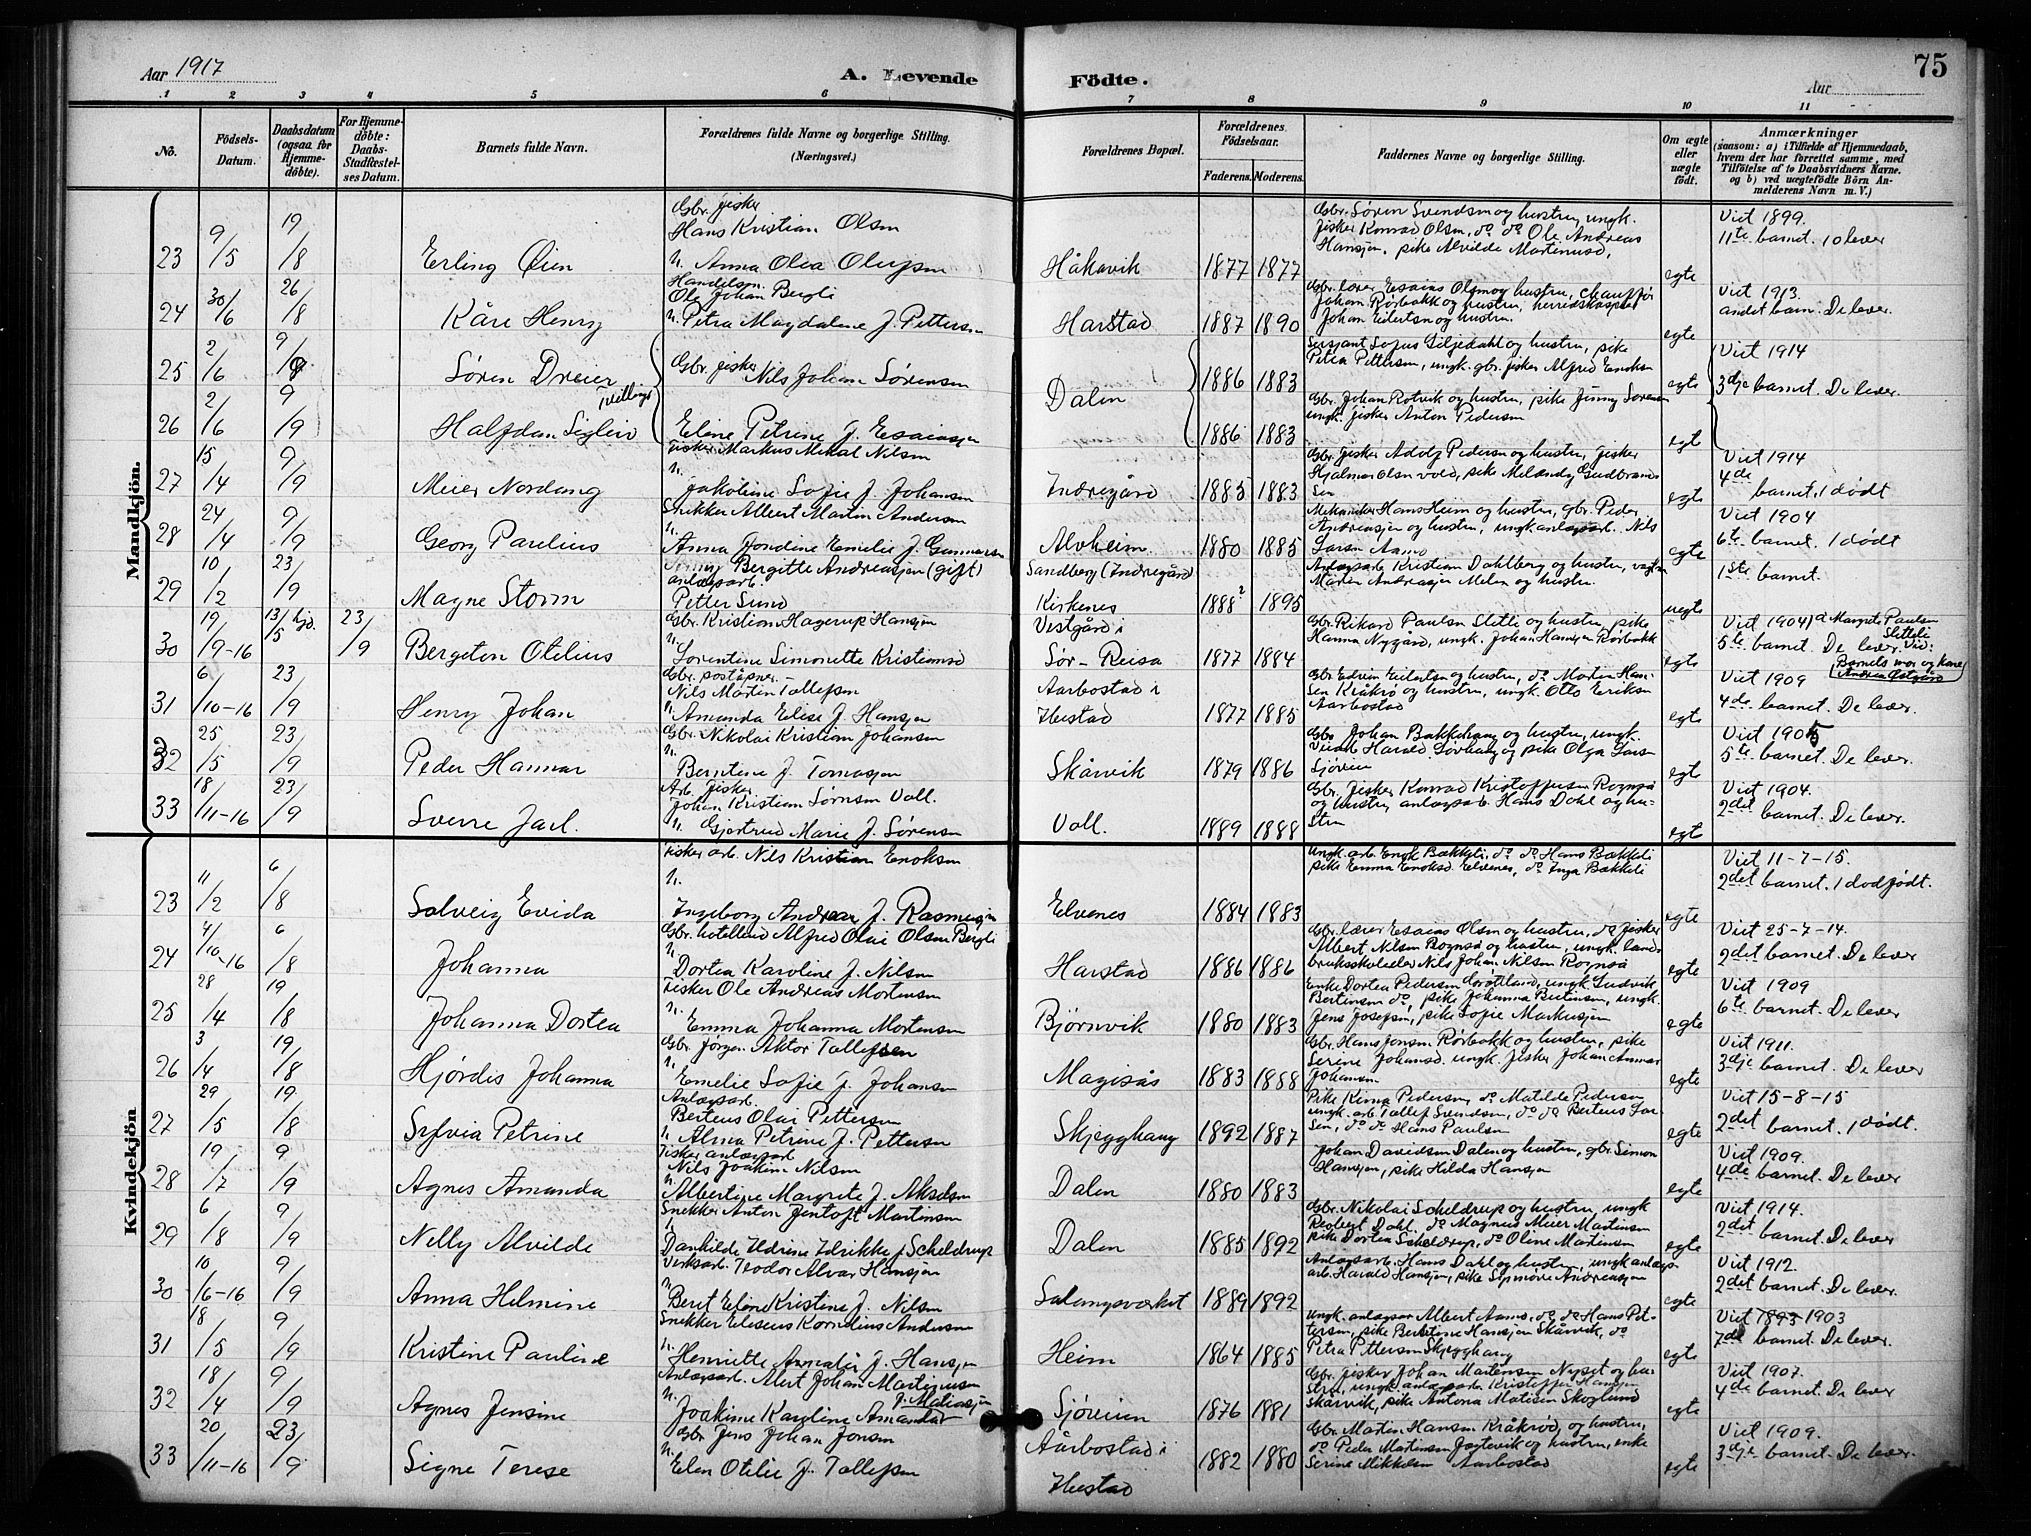 Aar 1917
A. Levende
Födte.
75
Aar
1 2 3 4 5 6 7 8 9 10 11
No.
Födsels-Datum.
Daabsdatum (ogsaa for Hjemmedöbte).
For Hjemmedöbte: Daabs-Stadfestelses Datum.
Barnets fulde Navn.
Forældrenes fulde Navne og borgerlige Stilling.
(Næringsvei.)
Forældrenes Bopæl.
Forældrenes Födselsaar.
Faderens. Moderens.
Faddernes Navne og borgerlige Stilling.
Om ægte eller uægte født.
Anmærkninger
(saasom: a) i Tilfælde af Hjemmedaab, hvem der har forrettet samme, med Tilföielse af to Daabsvidners Navne. og b) ved uægtefödte Börn Anmelderens Navn m. V.)
Mandkjön.
23 9/5 19/8 Erling Øien
Gbr. fisker
Hans Kristian Olsen
h. Anna Olea Olufsen
Håkavik 1877 1877
Gbr. Søren Svendsen og hustru, ungk.
fisker Konrad Olsen, do. do. Ole Andreas
Hansen, pike Alvilde Martinusd.
egte
Viet 1899.
11te barnet. 10 lever
24 30/6 26/8 Kåre Henry
Handelsm.
Ole Johan Bergli
h. Petra Magdalene f. Pettersen
Harstad 1887 1890
Gbr. lærer Esaias Olsen og hustru, chauffør
Johan Rørbakk og hustru, herredskasserer
Johan Eilertsen og hustru.
egte
Viet 1913.
andet barn. De lever.
25 2/6 9/9 Søren Dreier
Gbr. fisker Nils Johan Sørensen
Dalen 1886 1883
Sersjant Sofus Liljedahl og hustru, pike
Petra Pettersen, ungk. gbr. fisker Alfred Enoksen
egte
Viet 1914
3dje barnet. De lever.
26 2/6 9/9 Halfdan Sigleiv
tvillinger
Eline Petrine f. Esaiassen
1886 1883
Gbr. Johan Rotvik og hustru, pike Jenny Sørensen
ungk. fisker Anton Pedersen
egte
27 15/4 9/9 Meier Nordang
Fisker Markus Mikal Nilsen
h. Jakobine Sofie f. Johansen
Indregård 1885 1883
Gbr. fisker Adolf Pedersen og hustru, fisker
Hjalmar Olsen Vold, pike Melandy Gudbrand-
sen
egte
Viet 1914
4de barnet, 1 dødt
28 24/4 9/9 Georg Paulius
Snikker Albert Martin Andersen
h. Anna Jondine Emilie f. Gunnarsen
Alvheim 1880 1885
Mekaniker Hans Heim og hustru, gbr. Peder
Andreassen og hustru, ungk. anlægsarb. Nils
Larsen Aamo
egte
Viet 1904
6te barnet. 1 dødt
29 10/2 23/9 Magne Storm
Bergitte Andreassen (gift)
anlægsarb.
Petter Sund
Sandberg (Indregård)
Kirkenes
1888? 1895
Anlægsarb. Kristian Dahlberg og hustru,
Martin Andreassen Melen og hustru
uegte
1ste barnet.
30 19/9-16 13/5 hjd. 23/9 Bergeton Otelius
Gbr. Kristian Hagerup Hansen
h. Lorentine Simonette Kristiansd
Vestgård i
Sør-Reisa 1877 1884
Gbr. Rikard Paulsen Sletli og hustru, pike
Hanna Nygård, ungk. Johan Hansen Rørbakk
egte
Viet 1904 a Margrete Paulsen
Sletteli
5te barnet. De lever. Vid:
Barnets mor og kone
Andrea Østgård
31 6/10-16 23/9 Henry Johan
Gbr. poståpner –
Nils Martin Tollefsen
h. Amanda Elise f. Hansen
Aarbostad i
Ibestad 1877 1885
Gbr Edvin Eilertsen og hustru, do Morten Han-
sen Kråkrø og hustru, ungk. Otto Eriksen
Aarbostad
egte
Viet 1909
4de barnet. De lever.
32 25/5 23/9 Peder Hannar
Gbr. Nikolai Kristian Johansen
h. Berntine f. Tomassen
Skårvik 1879 1886
Gbr Johan Bakkehaug og hustru, ungk.
Harald Sørhaug og pike Olga Larsen
Sjøveien
egte
Viet 1905
5te barnet. De lever.
33 18/11-16 23/9 Sverre Jarl.
Arb. fisker
Johan Kristian Sørensen Voll.
h. Gjertrud Marie f. Sørensen
Voll. 1889 1888
Gbr. fisker Konrad Kristoffersen Rognsø
og hustru, anlægsarb. Hans Dahl og hu-
stru
egte
Viet 1904.
2det barnet. De lever.
Kvindekjön
23 11/2 6/8 Solveig Evida
Fisker arb. Nils Kristian Enoksen
h.
Ingeborg Andrea f. Rasmussen
Elvenes 1884 1883
Ungk. arb. Engk Bækkeli, do. do. Hans Bækkeli
pike Emma Enoksd. Elvenes, do. Inga Bækkeli
egte
Viet 11-7-15.
2det barnet. 1 dødfødt.
24 4/10-16 6/8 Johanna
Gbr. hotelleier Alfred Olai Olsen Bergli
h. Dortea Karoline f. Nilsen
Harstad 1886 1886
Gbr. lærer Esaias Olsen og hustru, do fisker
Albert Nilsen Rognsø og hustru, ungk. land-
bruksskoleelev Nils Johan Nilsen Rognsø
egte
Viet 25-7-14.
2det barnet. De lever
25 28/4 19/8 Johanna Dortea
Fisker Ole Andreas Mortensen
h. Emma Johanna Mortensen
Bjørnvik 1880 1883
Enke Dortea Pedersen, ungk. Ludvik
Berntsen do, pike Johanna Berntsen, ungk.
Jens Josefsen, pike Sofie Markussen
egte
Viet 1909
6te barnet. De lever
26 3/4 19/8 Hjørdis Johanna
Gbr. Jørgen Aktor Tollefsen
h. Emelie Sofie f. Johansen
Magisås 1883 1888
Gbr. Hans Jensen Rørbakk og hustru, pike
Serine Johansd. ungk. fisker Johan Anner
Johansen
egte
Viet 1911.
3dje barnet. De lever
27 29/5 19/8 Sylvia Petrine
Anlægsarb.
Berteus Olai Pettersen
h. Alma Petrine f. Pettersen
Skjegghaug 1892 1887
Pike Kinna Pedersen, do. Matilde Pedersen
ungk. arb. Tollef Svendsen, do. do. Berteus Lar-
sen, do. do. Hans Paulsen
egte
Viet 15-8-15
2det barnet. 1 dødt.
28 19/7 9/9 Agnes Amanda
Fisker anlægsarb
Nils Joakim Nilsen
h. Albertine Margrete f. Akselsen
Dalen 1880 1883
Johan Davidsen Dalen og hustru, gbr. Simon
Hansen, pike Hilda Hansen
egte
Viet 1909.
4de barnet. De lever
29 6/8 9/9 Nelly Alvilde
Snekker Anton Jentoft Martinsen
h.
Danhilde Hdrine Idrikke f Scheldrup
Dalen 1885 1892
Gbr. Nikolai Scheldrup og hustru, ungk
Robert Dahl. do Magnus Meier Martinsen
pike Dortea Scheldrup, do Oline Martinsen
egte
Viet 1914.
2det barnet. De lever
30 10/6-16 9/9 Anna Helmine
Verksarb. Teodor Alvar Hansen
h. Beret Eline Kristine f. Nilsen
Salangsverket 1889 1892
Anlægsarb. Hans Dahl og hustru, ungk anlægs-
arb. Harald Hansen, pike Signora Andreassen
egte
Viet 1912.
2det barnet. De lever.
31 18/5 9/9 Kristine Pauline
Snekker Eliseus Kornelius Andersen
h. Henriette Amalie f. Hansen
Heim 1864 1885
Ungk. anlægsar Albert Aamo, do. do Hans Pet-
tersen, pike Berntine Hansen Skårvik, do
Petra Pettersen Skjegghaug
egte
Viet 1893 1903
7de barnet. De lever.
32 18/4 9/9 Agnes Jensine
Anlægsarb. Alert Johan Martinusen
f. Matiassen
h. Joakime Karoline Amanda
Sjøveien 1876 1881
Gbr. fisker Johan Martensen Nyset og hu-
stru, ungk. anlægsarb. Kristoffer Hansen
Skårvik, pike Antona Matisen Skoglund
egte
Viet 1907.
4de barnet. De lever
33 20/11-16 23/9 Signe Terese
Gbr Jens Johan Jensen
h. Elen Otelie f. Tollefsen
Aarbostad i
Ibestad
1882 1880
Gbr. Martin Hansen Kråkrød, og hustru,
do. Peder Martinsen og hustru, enke
Serine Mikkelsen Aarbostad
egte
Viet 1909.
3dje barnet. De lever.